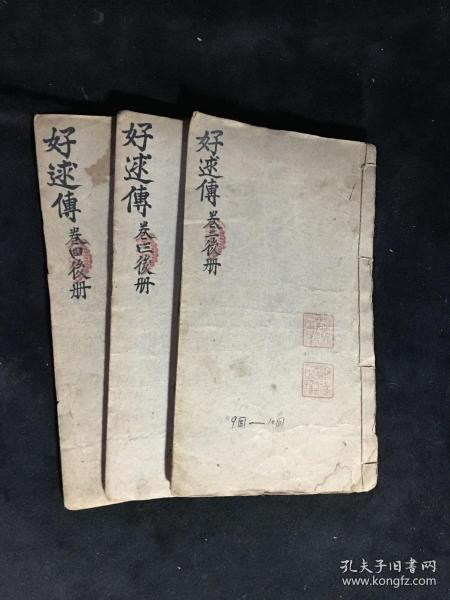 好逑傳
卷四後册
好逑傳
卷三後册
好逑傳
卷二後册
9回—10回
孔夫子旧书网
www.kongfz.com